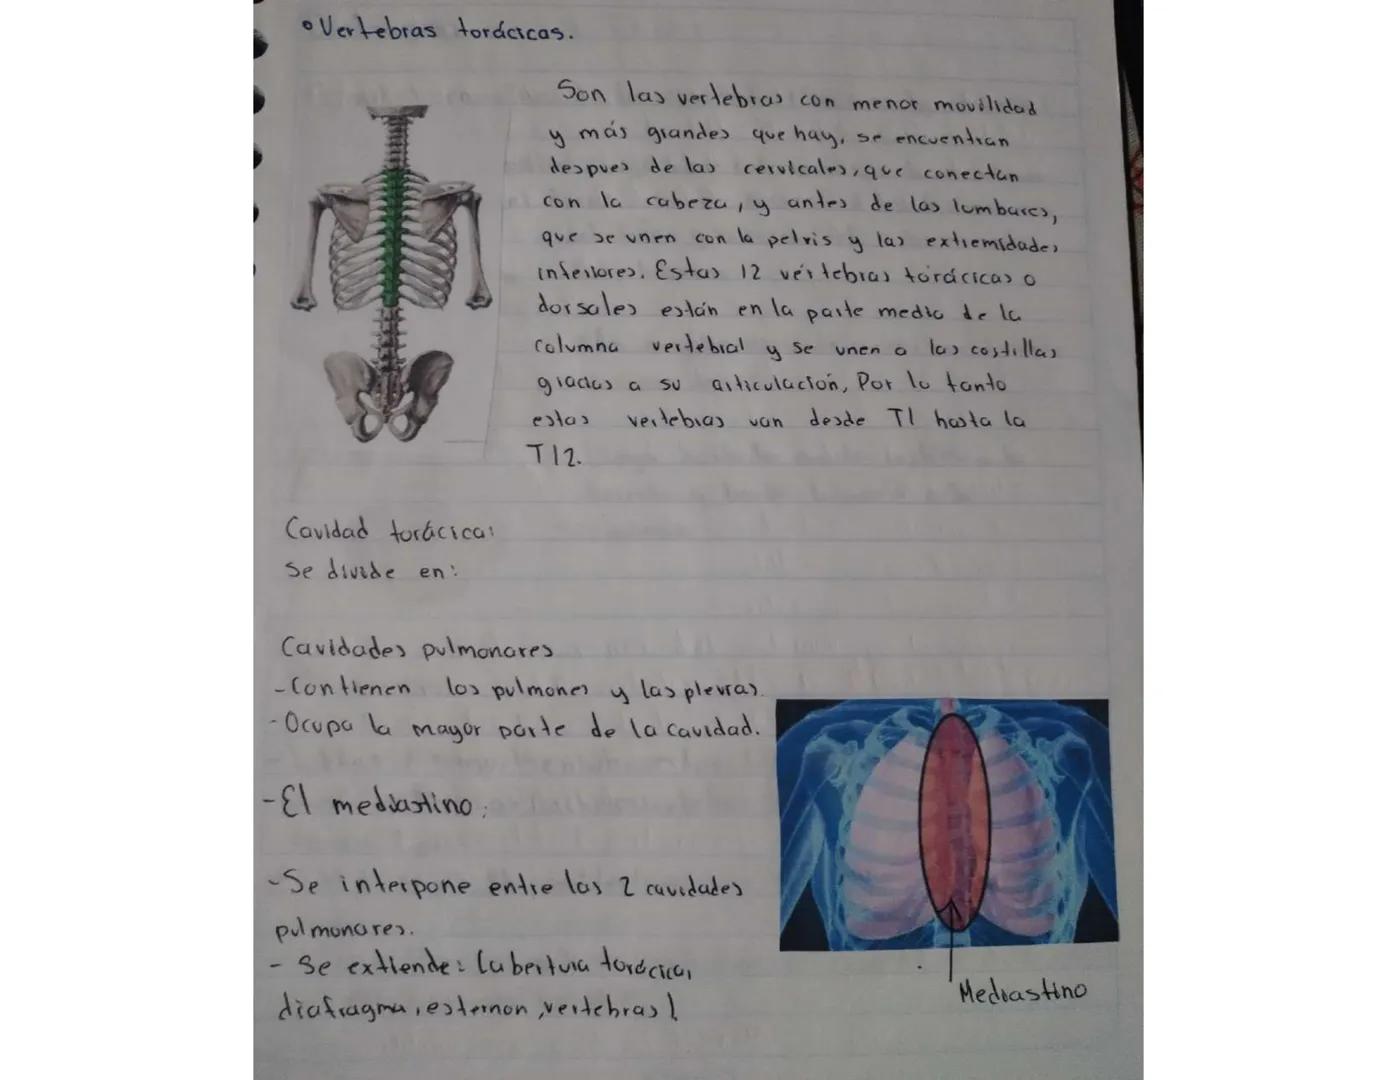 ° Vertebras torácicas.
Son las vertebras con menor movilidad
y más grandes que hay, se encuentran
despues de las cervicales, que conectan
con la cabeza, y antes de las lumbares,
que se unen con la pelvis y las extremidades
inferiores. Estas 12 vértebras torácicas o
dorsales están en la parte media de la
columna vertebral y se unen a las costillas
gracias a su articulación, Por lo tanto
estas vertebras van desde T1 hasta la
T12.
Cavidad torácica:
Se divide en:
Cavidades pulmonares
- Contienen los pulmones y las pleuras.
- Ocupa la mayor parte de la cavidad.
- El mediastino:
- Se interpone entre las 2 cavidades
pulmonares.
- Se extiende: (abertura torácica,
diafragma, esternon, vertebras).
Mediastino